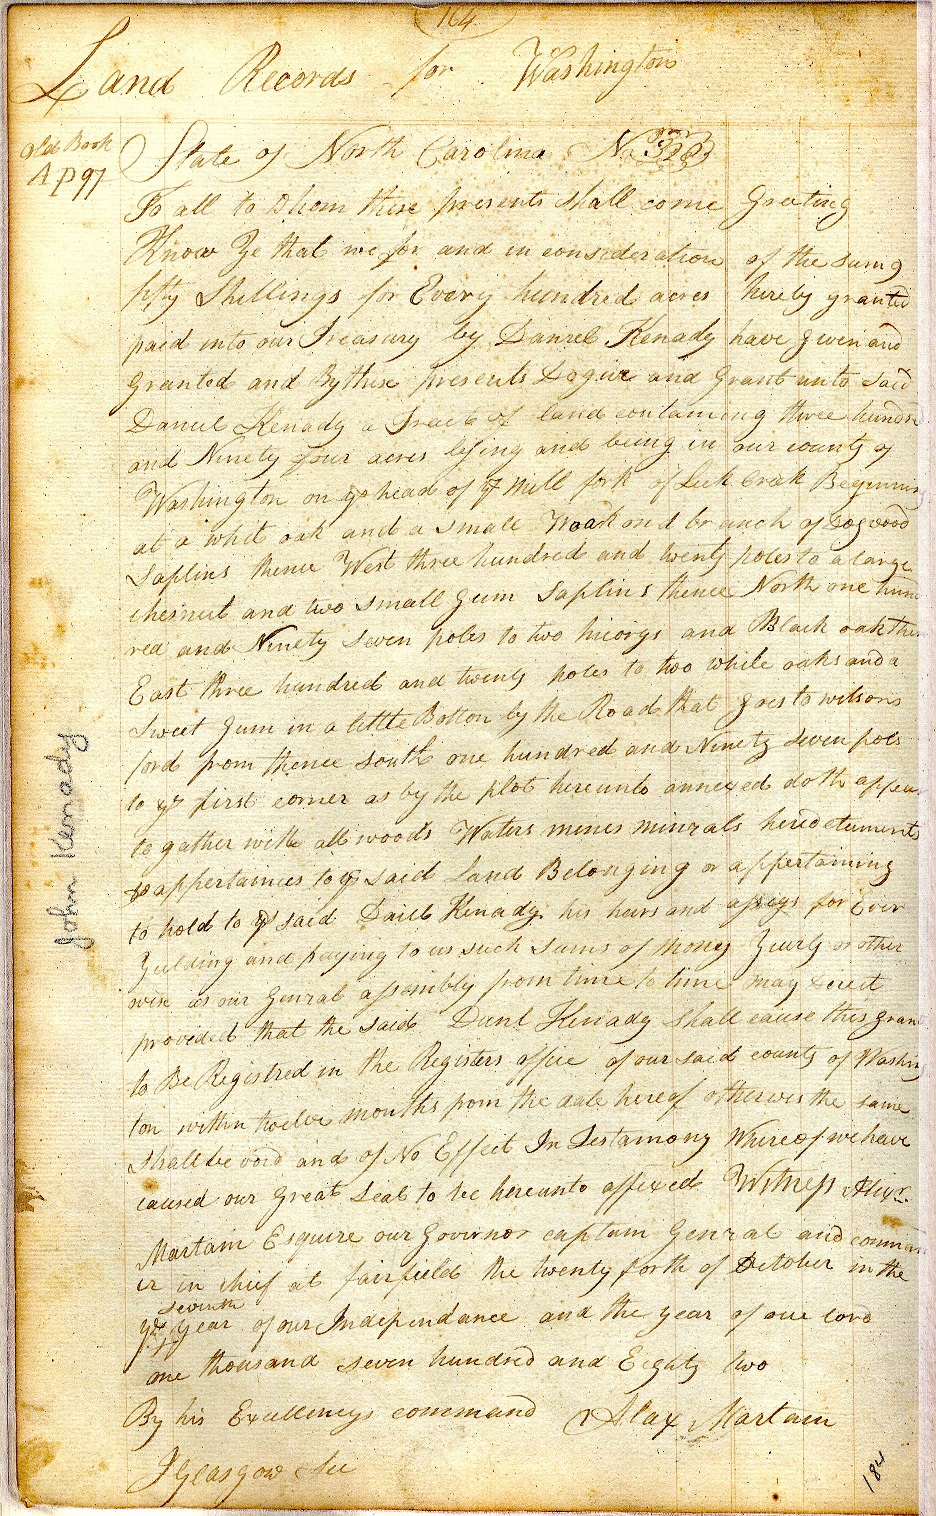 164
Land Records for Washington
Old Book
A p 97
State of North Carolina No 328
To all to Whom these presents shall come Greeting
Know Ye that we for and in consideration of the sum of
fifty Shillings for Every hundred acres hereby granted
paid into our Treasury by Daniel Kenady have given and
Granted and By these presents Do give and Grant unto said
Daniel Kenady a Tract of land containing three hundre
and Ninety four acres lying and being in our county of
Washington on ye head of ye Mill fork of Lick Creek Beginning
at a whit oak and a small and branch of Dogwood
Saplins thence West three hundred and twenty poles to a large
chesnut and two small gum Saplins thence North one hund
red and Ninety seven poles to two hicorys and Black oak then
East three hundred and twenty poles to two white oaks and a
Sweet gum in a little Botton by the Road that goes to wilsons
ford from thence south one hundred and Ninety seven pols
to ye first corner as by the plot hereunto annexed doth appea
to gather with all woods Waters mines minrals heredetuments
& appertainces to ye said Land Belonging or appertaining
to hold to ye said Daniel Kenady his heirs and assigs for Ever
Yeilding and paying to us such sums of money Yearly or other
wise as our Genral assembly from time to time may
provided that the said Danl Kenady shall cause this gran
to Be Registred in the Registers office of our said county of Washing
ton within twelve months from the date hereof otherwis the same
shall be void and of No Effect In Testamony Whereof we have
caused our great Seal to be hereunto affixed Witness Alexr.
Martain Esquire our Govornor captain Genral and comman
er in chief at fairfield the twenty forth of October in the
seventh
ye year of our Independance and the year of our lord
one thousand seven hundred and Eighty two
By his Excellencys command Alax Martain
J Glasgow Sec
John Kenady
184